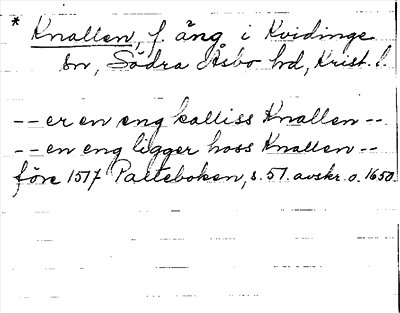 * Knallen, f. äng i Kvidinge
sn, Södra Åsbo hd, Krist. l.
-- er en eng kalliss Knallen --
-- en eng ligger hoss Knallen --
före 1517 Palteboken, s. 57. avskr. o. 1650.